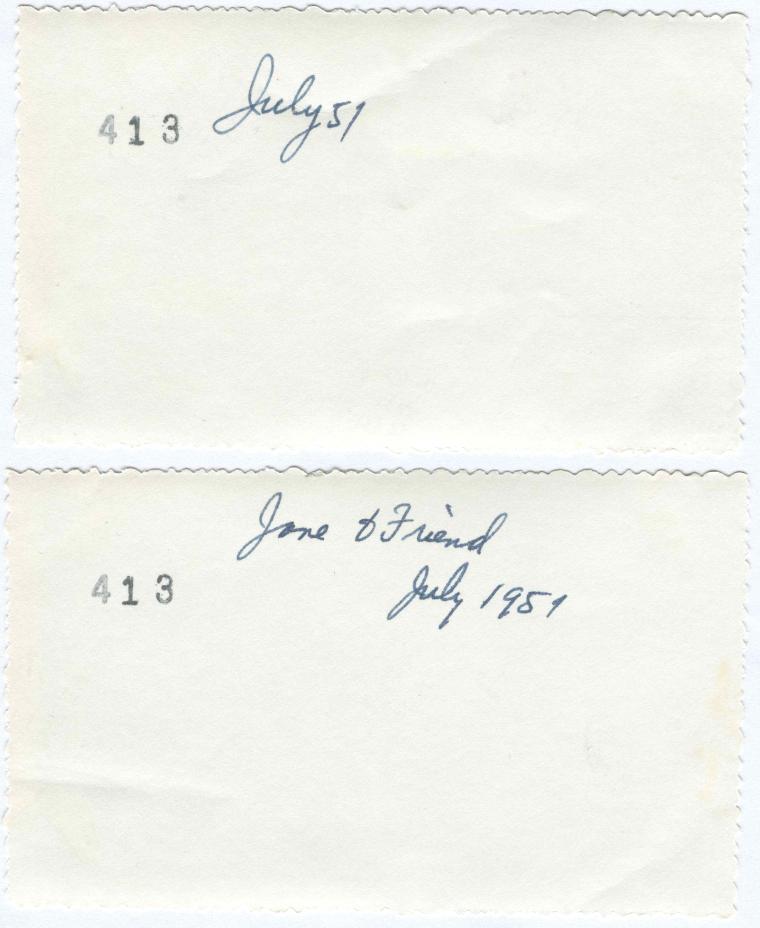 413 July 51
Jane & Friend
413 July 1951